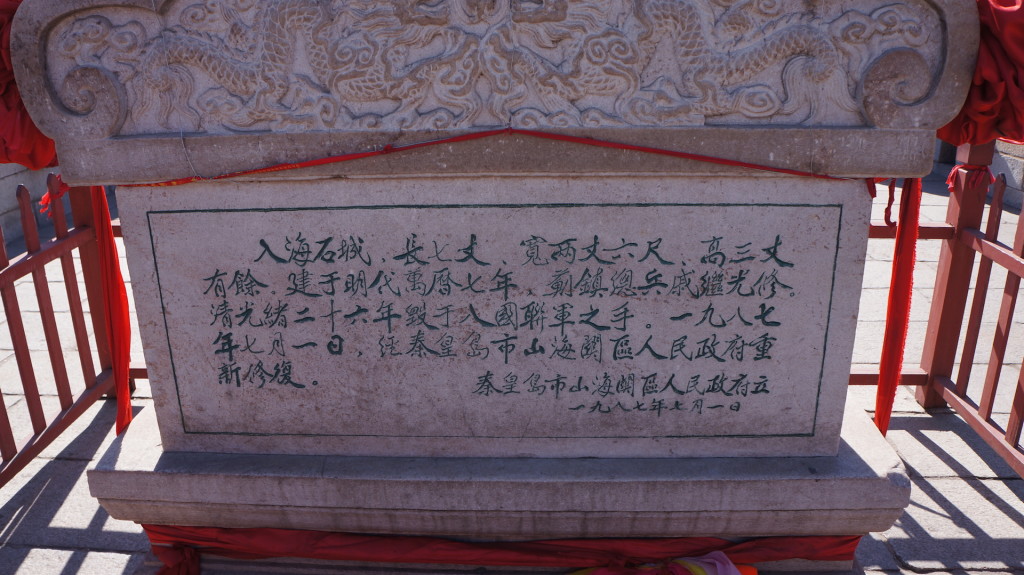 入海石城、長七丈、寬兩丈六尺、高三丈
有餘、建于明代萬曆七年、薊鎮總兵戚繼光修。
清光緒二十六年毀于八國聯軍之手。一九八七
年七月一日、經秦皇島市山海關區人民政府重
新修復。
秦皇島市山海關區人民政府立
一九八七年七月一日